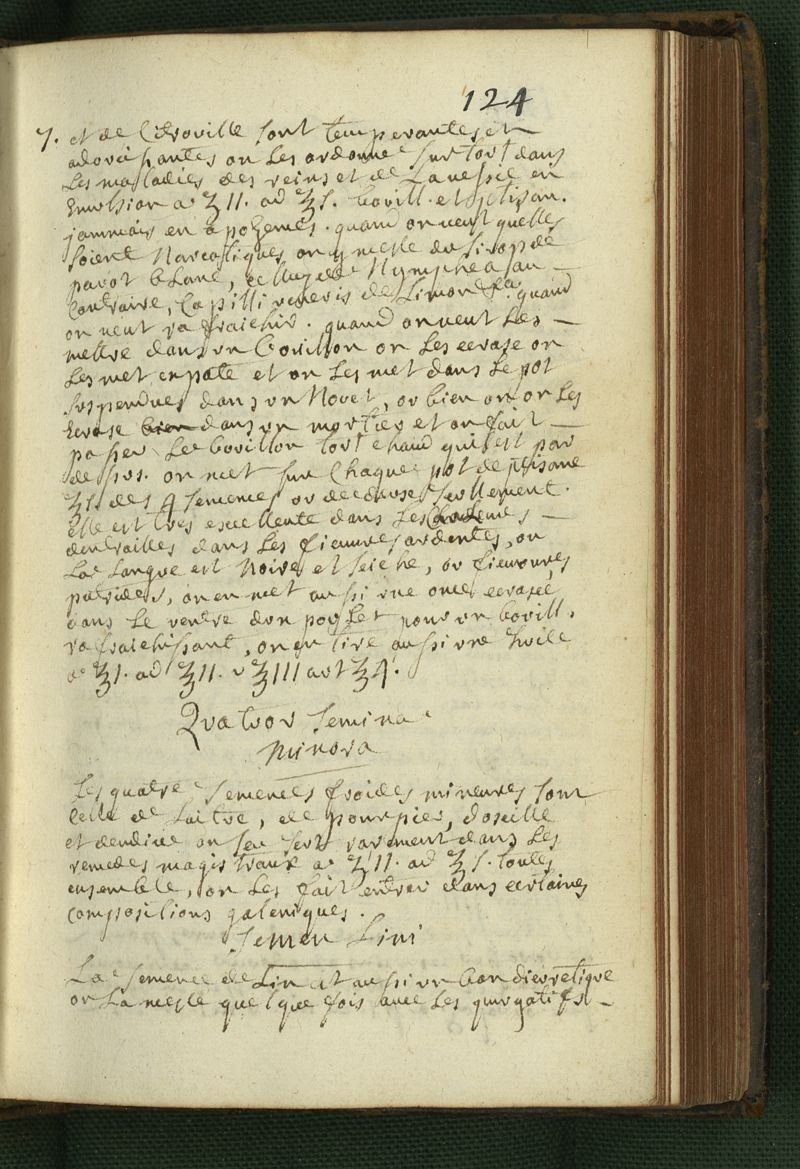 124
7. et de Citroville sont temperantes et
adoucissantes on les ordonne sur tort dans
les maladies des reins et de la vessie en
Emulsion a ʒ II. ad ℥ s. bovill. et ptisan.
jammais en apozemes. quand on veut quelles
soient Narcotiques on y mesle du sirop de
pavot blanc, celluy de Nymphea au —
Contraire, Capilli veneris de Limon &a. quand
on veut rafraichir. quand on veut les —
mettre dans vn bovillon on les ecrase on
les met en pate et on les met dans le pot
suspendues dans vn Novet, ov bien on les
Ecrase bien dans vn mortier et on fait —
passer le bovillon tovt chaud qui est par
dessvs. on met sur Chaque pot de ptisane
des 4 semences ov de devx sevllement.
elle est tres excellente dans les —
dentrailles dans les fievvres ardentes, ou
la langve est Noire et seiche, ov fievvres
putrides, on en met aussi vne once ecrasée
dans le ventre dvn poullet pour vn bovill.
rafraichissant, on en tire aussi vne hvile
a ℥ I. ad ℥ II. v ℥ III avt ℥ 4.
Qvatvor semina
minora
Les quatre semences froides mineures sont
celle de Laitve, de pourpier, doseille
et dendive on sen sert rarement dans les
remedes magistravx a ʒ II. ad ℥ s. toutes
ensemble, on les fait entrer dans certaines
compositions galeniques.
Semen Lini
La semence de Lin est aussi vn bon dievretiqve
on la mesle quelque fois avec les purgatifs —